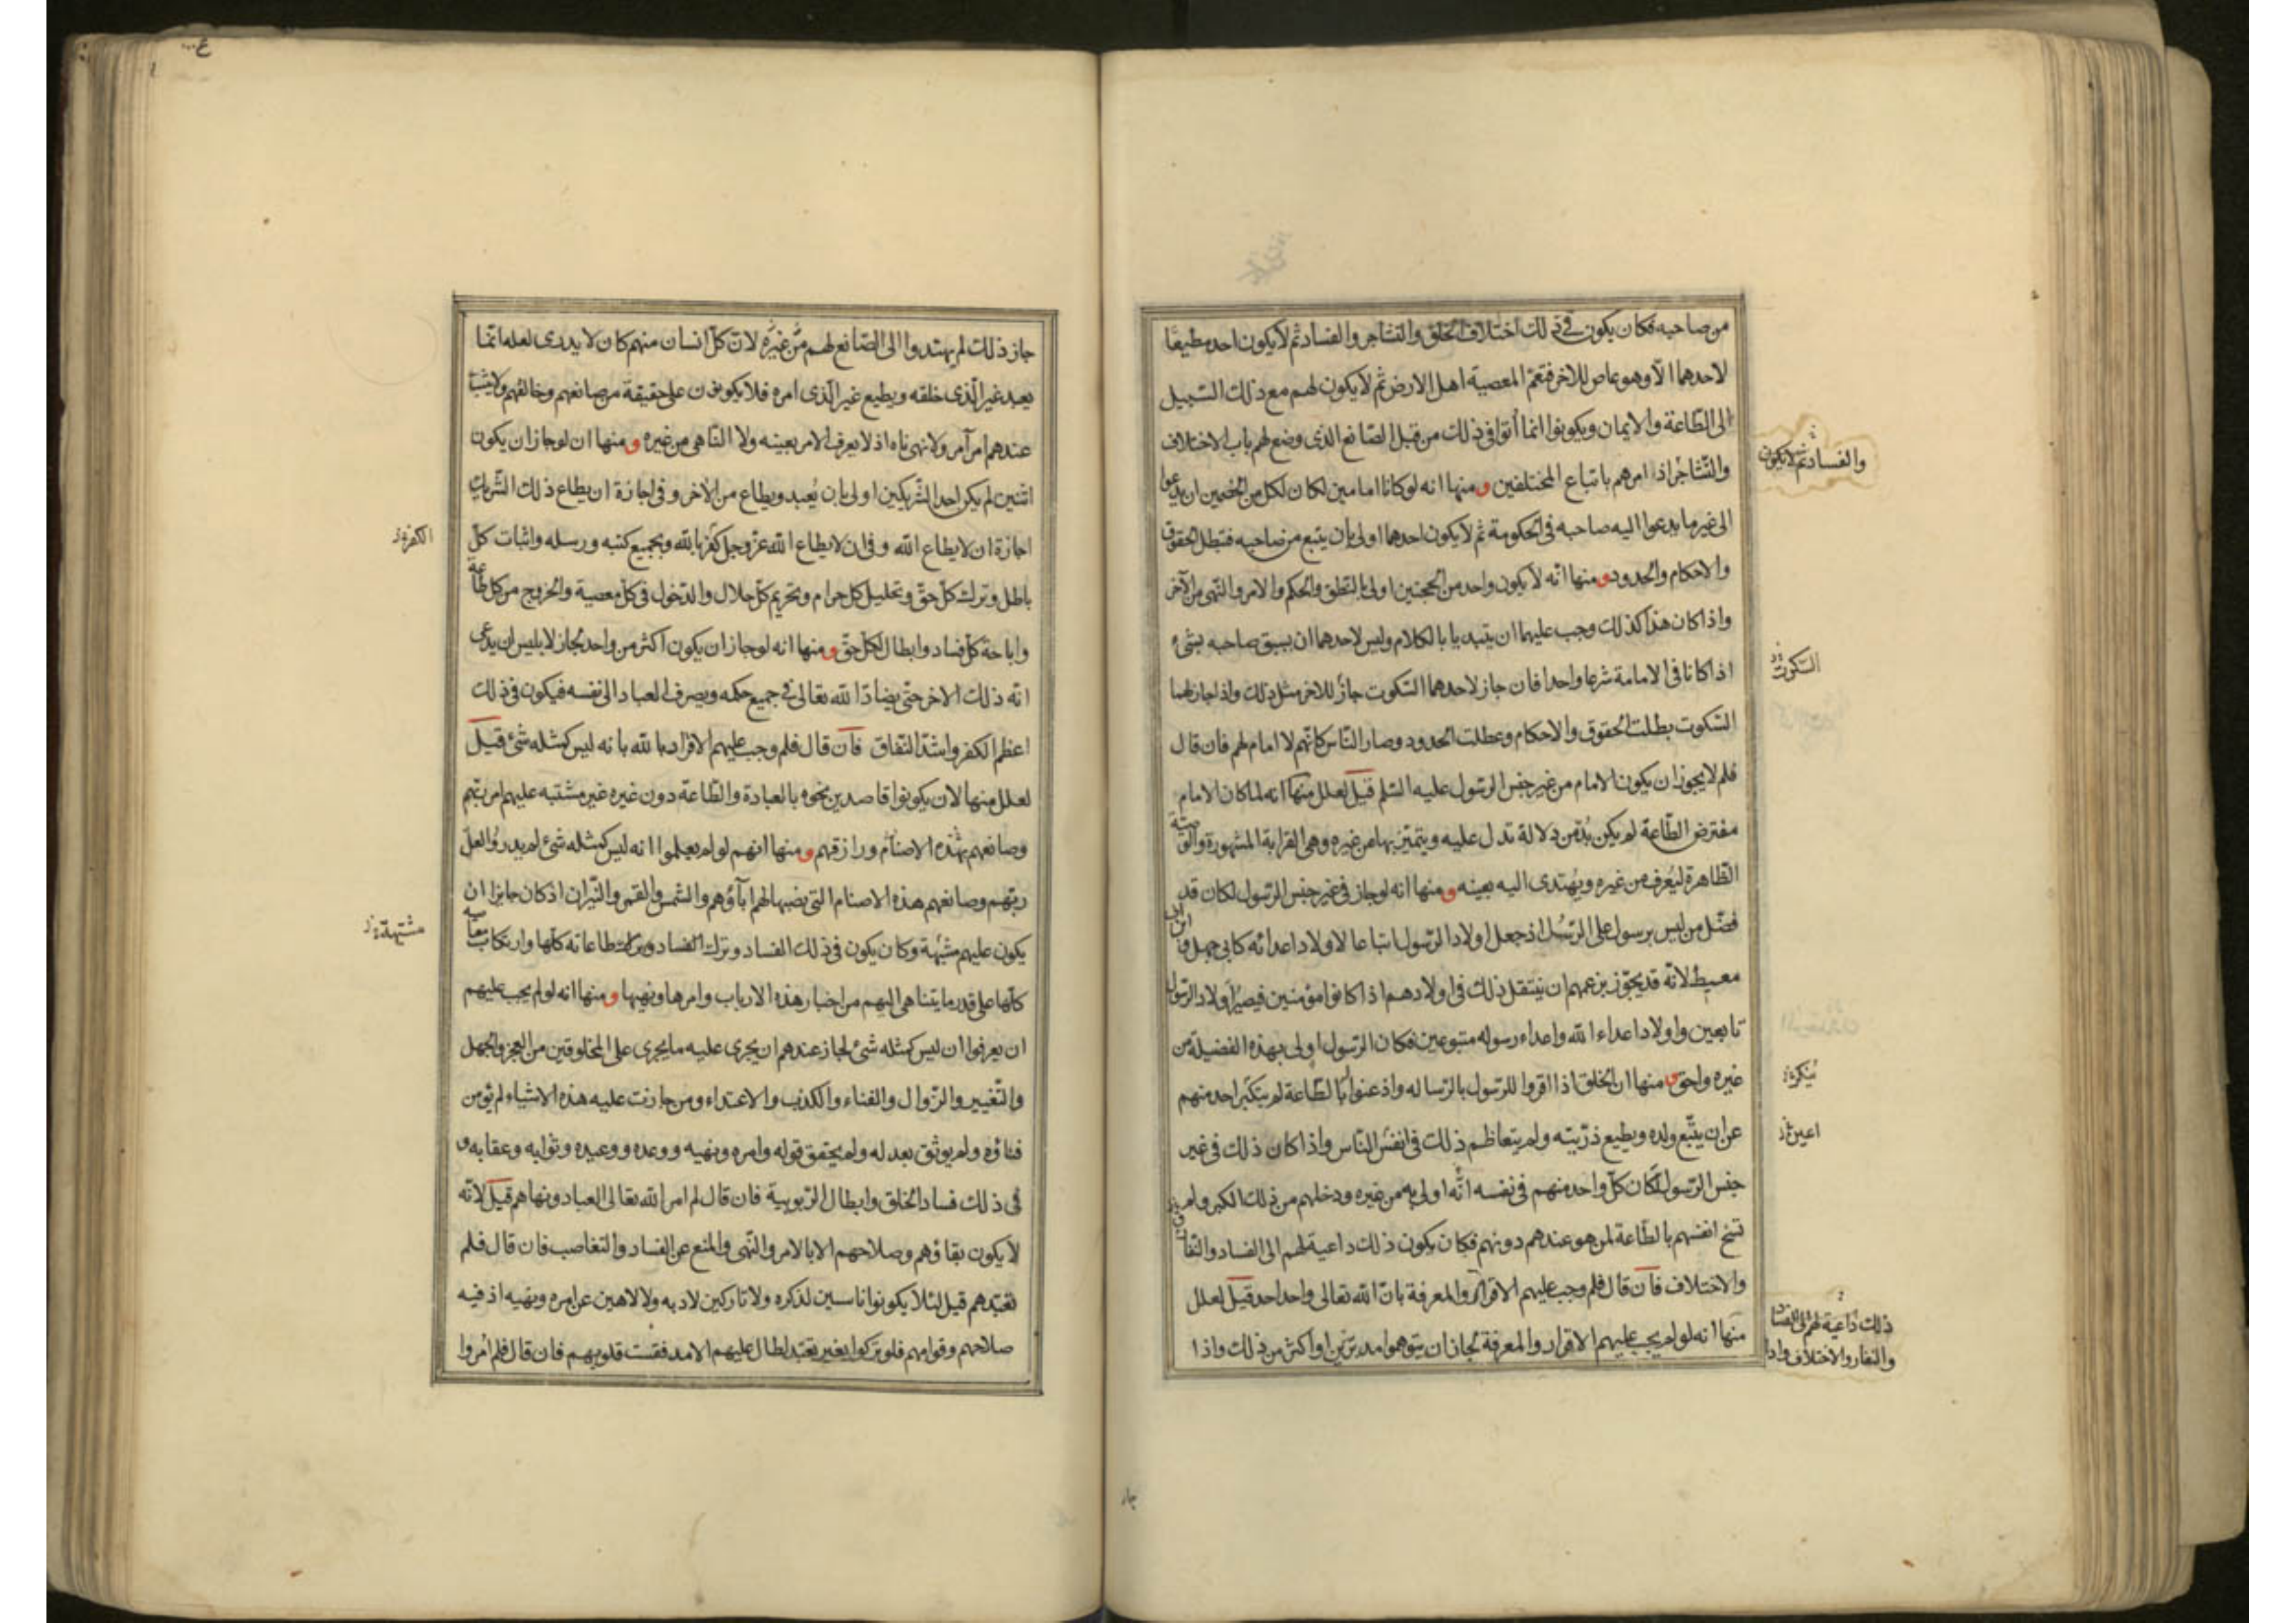 من صاحبه فكان يكون في ذلك اختلاف الخلق والتشاجر والفساد ثم لا يكون احد مطيعا
لاحدهما الا وهو عاص للاخر فتعم المعصية اهل الارض ثم لا يكون لهم مع ذلك السبيل
الى الطاعة والايمان ويكونوا انما أتوا في ذلك من قبل الصانع الذي وضع لهم باب الاختلاف
والتشاجر اذ امرهم باتباع المختلفين ومنها انه لو كانا امامين لكان لكل من الخصمين ان يدعوا
الى غير ما يدعوا اليه صاحبه في الحكومة ثم لا يكون احدهما اولى بأن يتبع من صاحبه فتبطل الحقوق
والاحكام والحدود ومنها انه لا يكون واحد من الحجتين اولى بالنطق والحكم والامر والنهي من الآخر
واذا كان هذا كذلك وجب عليهما ان يبتديا بالكلام وليس لاحدهما ان يسبق صاحبه بشئ
اذا كانا في الامامة شرعا واحدا فان جاز لاحدهما السكوت جاز للاخر مثل ذلك واذا جاز لهما
السكوت بطلت الحقوق والاحكام وعطلت الحدود وصار الناس كانهم لا امام لهم فان قال
فلم لا يجوز ان يكون الامام من غير جنس الرسول عليه السلم قيل لعلل منها انه لما كان الامام
مفترض الطاعة لم يكن بد من دلالة تدل عليه ويتميز بها من غيره وهي القرابة المشهورة والوصية
الظاهرة ليعرف من غيره ويهتدى اليه بعينه ومنها انه لو جاز في غير جنس الرسول لكان قد
فضل من ليس برسول على الرسل اذ جعل اولاد الرسول اتباعا لاولاد اعدائه كابي جهل وابن ابي
معيط لانه قد يجوز بزعمهم ان ينتقل ذلك في اولادهم اذا كانوا مؤمنين فيصير اولاد الرسول
تابعين واولاد اعداء الله واعداء رسوله متبوعين فكان الرسول اولى بهذه الفضيلة من
غيره واحق ومنها ان الخلق اذا اقروا للرسول بالرسالة واذعنوا بالطاعة لم يتكبر احد منهم
عن ان يتبع ولده ويطيع ذريته ولم يتعاظم ذلك في انفس الناس واذا كان ذلك في غير
جنس الرسول لكان كل واحد منهم في نفسه انه اولى به من غيره ودخلهم من ذلك الكبر ولم
تسخ انفسهم بالطاعة لمن هو عندهم دونهم فكان يكون ذلك داعية لهم الى الفساد والنفاق
والاختلاف فان قال فلم وجب عليهم الاقرار والمعرفة بان الله تعالى واحد احد قيل لعلل
منها انه لو لم يجب عليهم الاقرار والمعرفة لجاز ان يتوهموا مدبرين او اكثر من ذلك واذا
والفساد ثم لا يكون
السكوت
ينكره
اعين
ذلك داعية لهم الى الفساد
والنفار والاختلاف واذا
جاز ذلك لم يهتدوا الى الصانع لهم من غيره لان كل انسان منهم كان لا يدرى لعله انما
يعبد غير الذى خلقه ويطيع غير الذى امره فلا يكونون على حقيقة من صانعهم وخالقهم ولا يثبت
عندهم امر آمر ولا نهى ناه اذ لا يعرف الامر بعينه ولا الناهى من غيره ومنها ان لو جاز ان يكون
اثنين لم يكن احد الشريكين اولى بان يعبد ويطاع من الأخر وفى اجازة ان يطاع ذلك الشريك
اجازة ان لا يطاع الله وفى ان لا يطاع الله عز وجل كفر بالله وبجميع كتبه ورسله واثبات كل
باطل وترك كل حق وتحليل كل حرام وتحريم كل حلال والدخول فى كل معصية والخروج من كل طاعة
واباحة كل فساد وابطال لكل حق ومنها انه لو جاز ان يكون اكثر من واحد لجاز لابليس ان يدعى
انه ذلك الاخر حتى يضاد الله تعالى فى جميع حكمه ويصرف العباد الى نفسه فيكون فى ذلك
اعظم الكفر واشد النفاق فان قال فلم وجب عليهم الاقرار بالله بانه ليس كمثله شئ قيل
لعلل منها لان يكونوا قاصدين نحوه بالعبادة والطاعة دون غيره غير مشتبه عليهم امر ربهم
وصانعهم بهذه الاصنام ورازقهم ومنها انهم لو لم يعلموا انه ليس كمثله شئ لم يدروا لعل
ربهم وصانعهم هذه الاصنام التى نصبها لهم آباؤهم والشمس والقمر والنيران اذ كان جايزا ان
يكون عليهم مشبهة وكان يكون فى ذلك الفساد وترك طاعاته كلها وارتكاب معاصيه
كلها على قدر ما يتناهى اليهم من اخبار هذه الارباب وامرها ونهيها ومنها انه لو لم يجب عليهم
ان يعرفوا ان ليس كمثله شئ لجاز عندهم ان يجرى عليه ما يجرى على المخلوقين من العجز والجهل
والتغيير والزوال والفناء والكذب والاعتداء ومن جازت عليه هذه الاشياء لم يؤمن
فناؤه ولم يوثق بعدله ولم يحقق قوله وامره ونهيه ووعده ووعيده وثوابه وعقابه و
فى ذلك فساد الخلق وابطال الربوبية فان قال لم امر الله تعالى العباد ونهاهم قيل لانه
لا يكون بقاؤهم وصلاحهم الا بالامر والنهى والمنع عن الفساد والتغاصب فان قال فلم
تعبدهم قيل لئلا يكونوا ناسين لذكره ولا تاركين لادبه ولا لاهين عن امره ونهيه اذ فيه
صلاحهم وقوامهم فلو تركوا بغير تعبد لطال عليهم الامد فقست قلوبهم فان قال فلم امروا
الكفر
مشتبهة